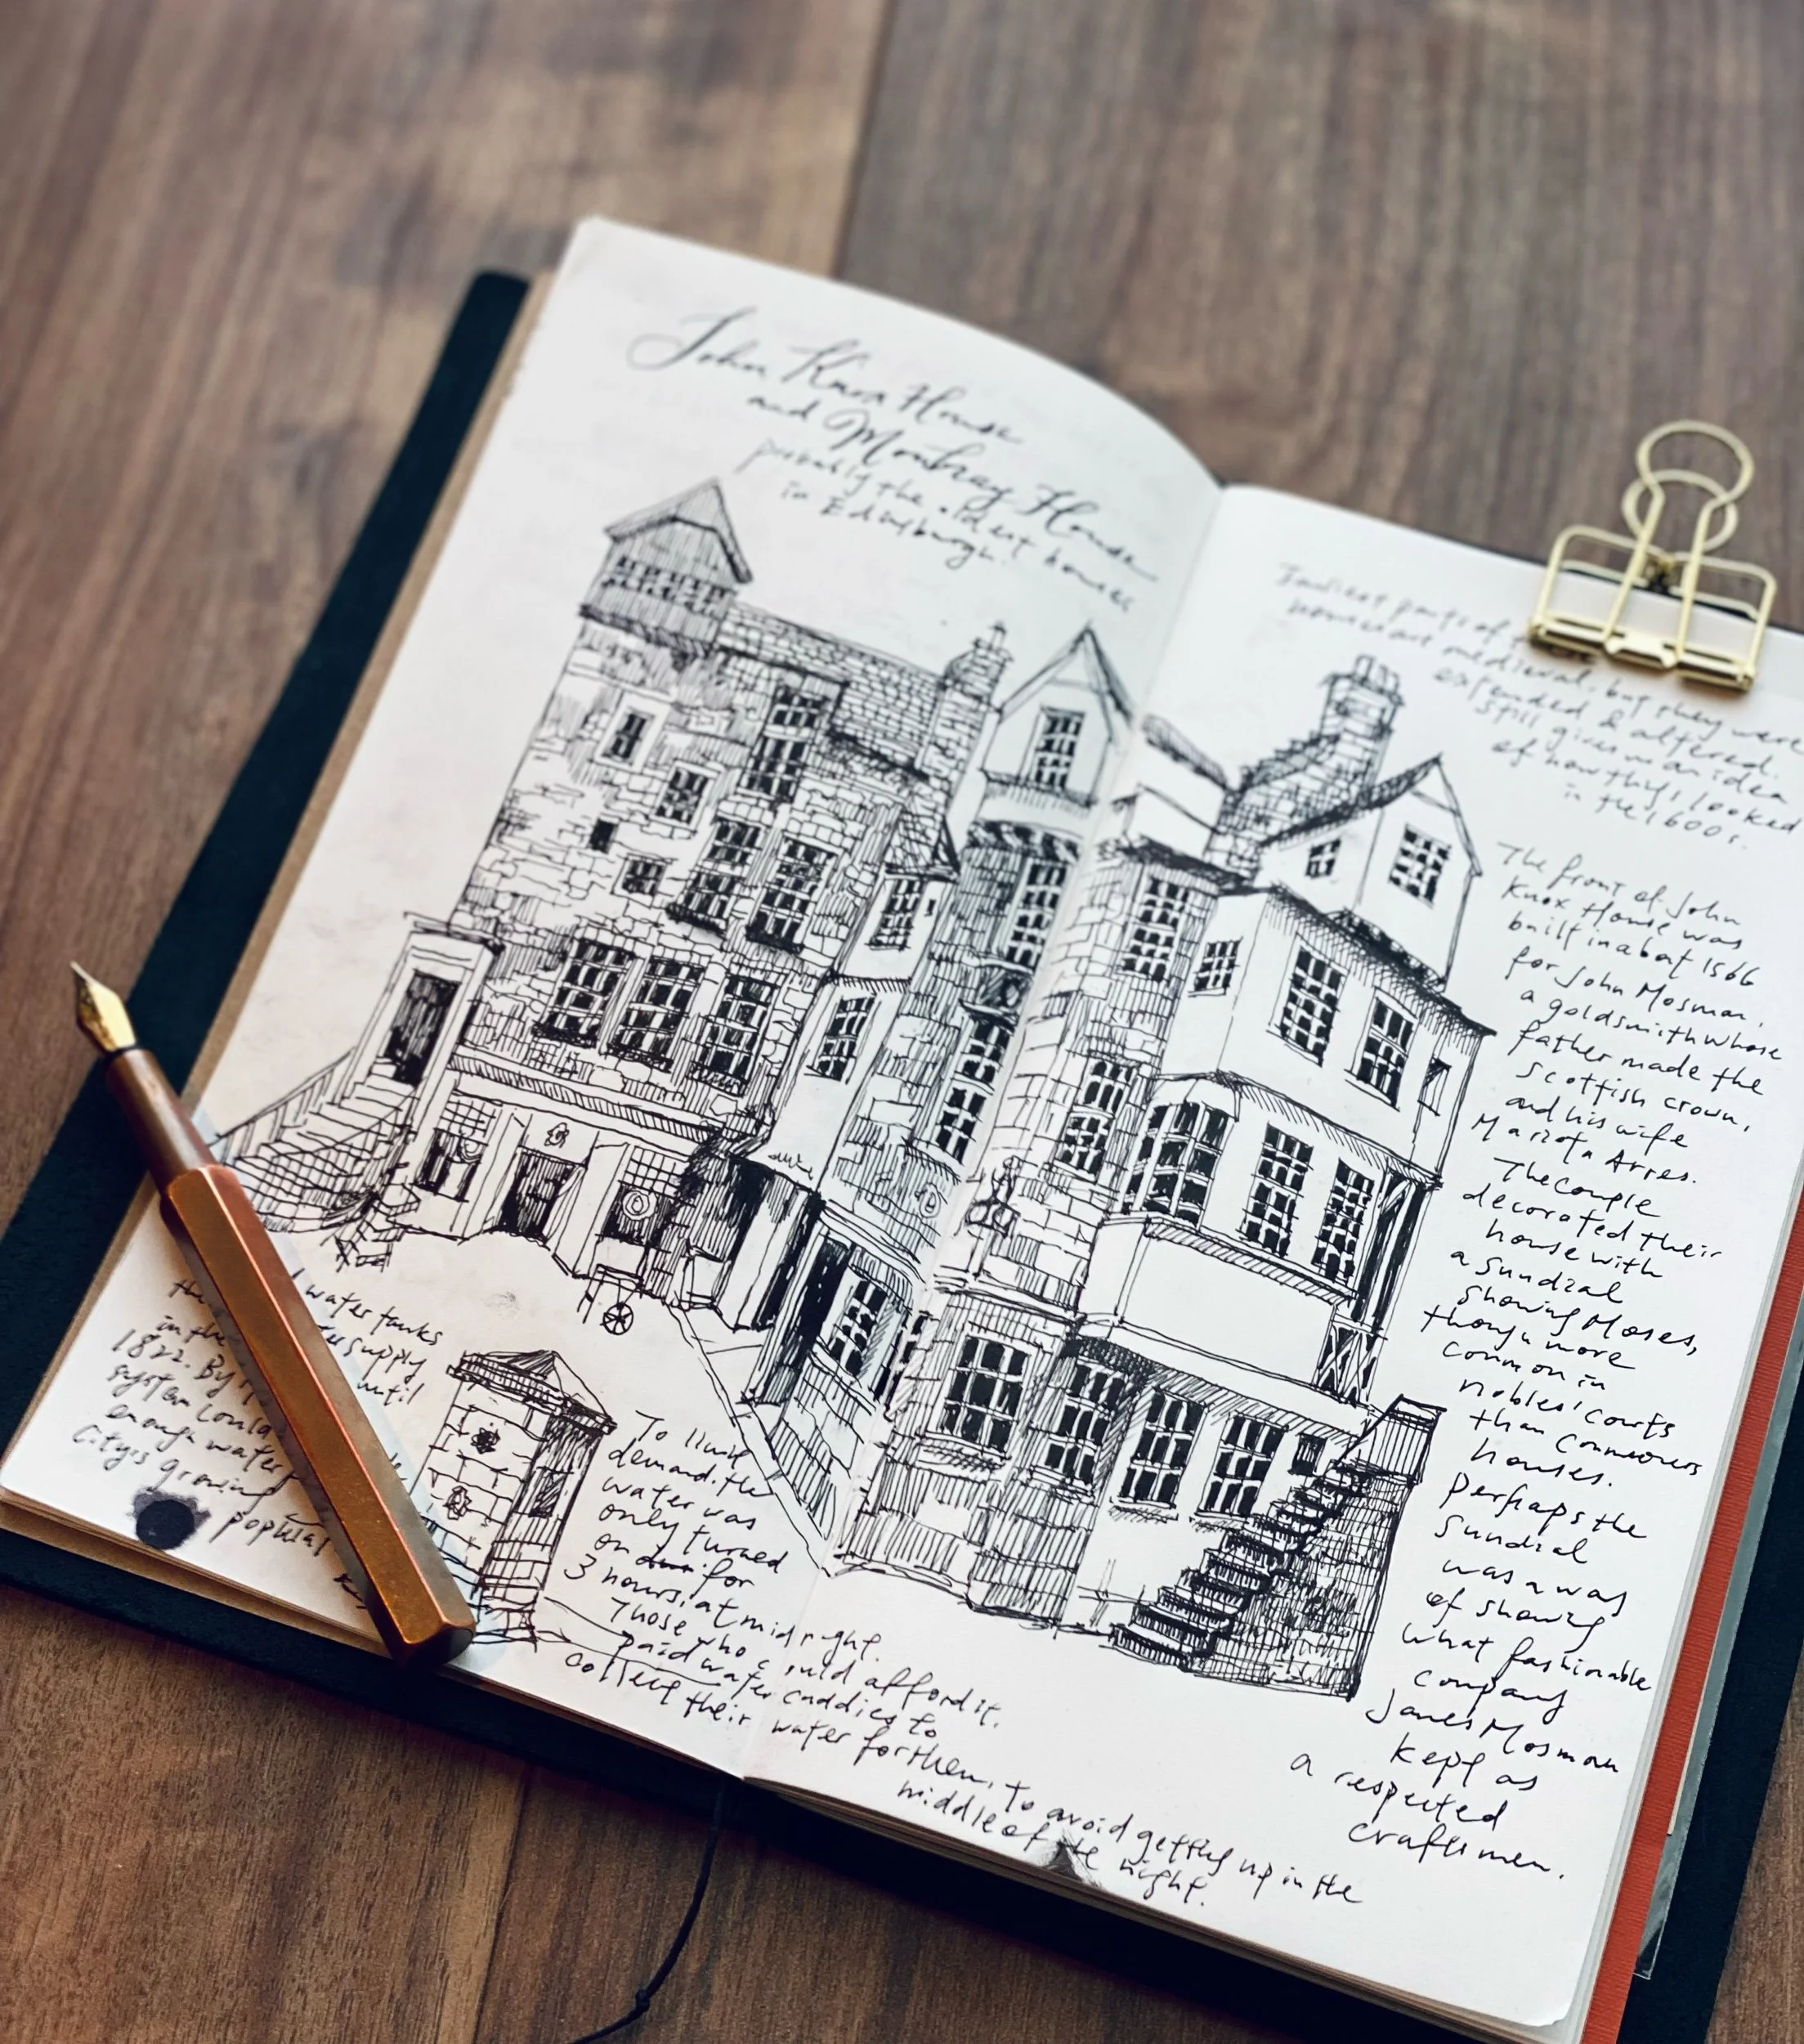 John Knox House
and Moubray House
probably the oldest houses
in Edinburgh.
parts of
medieval, but they were
extended & altered.
Still gives an idea
of how things looked
in the 1600s.
The front of John
Knox House was
built in about 1566
for John Mosman,
a goldsmith whose
father made the
Scottish crown,
and his wife
Mariota Arres.
The couple
decorated their
house with
a sundial
showing Moses,
though more
common in
nobles' courts
than commoners
houses.
Perhaps the
sundial
was a way
of showing
what fashionable
company
James Mosman
kept as
a respected
craftsmen.
water tanks
in the supply
1822. By until
system
enough water
City's growing
To limit
demand, the
water was
only turned
on for
3 hours, at midnight.
Those who could afford it,
paid water caddies to
collect their water for them, to avoid getting up in the
middle of the night.